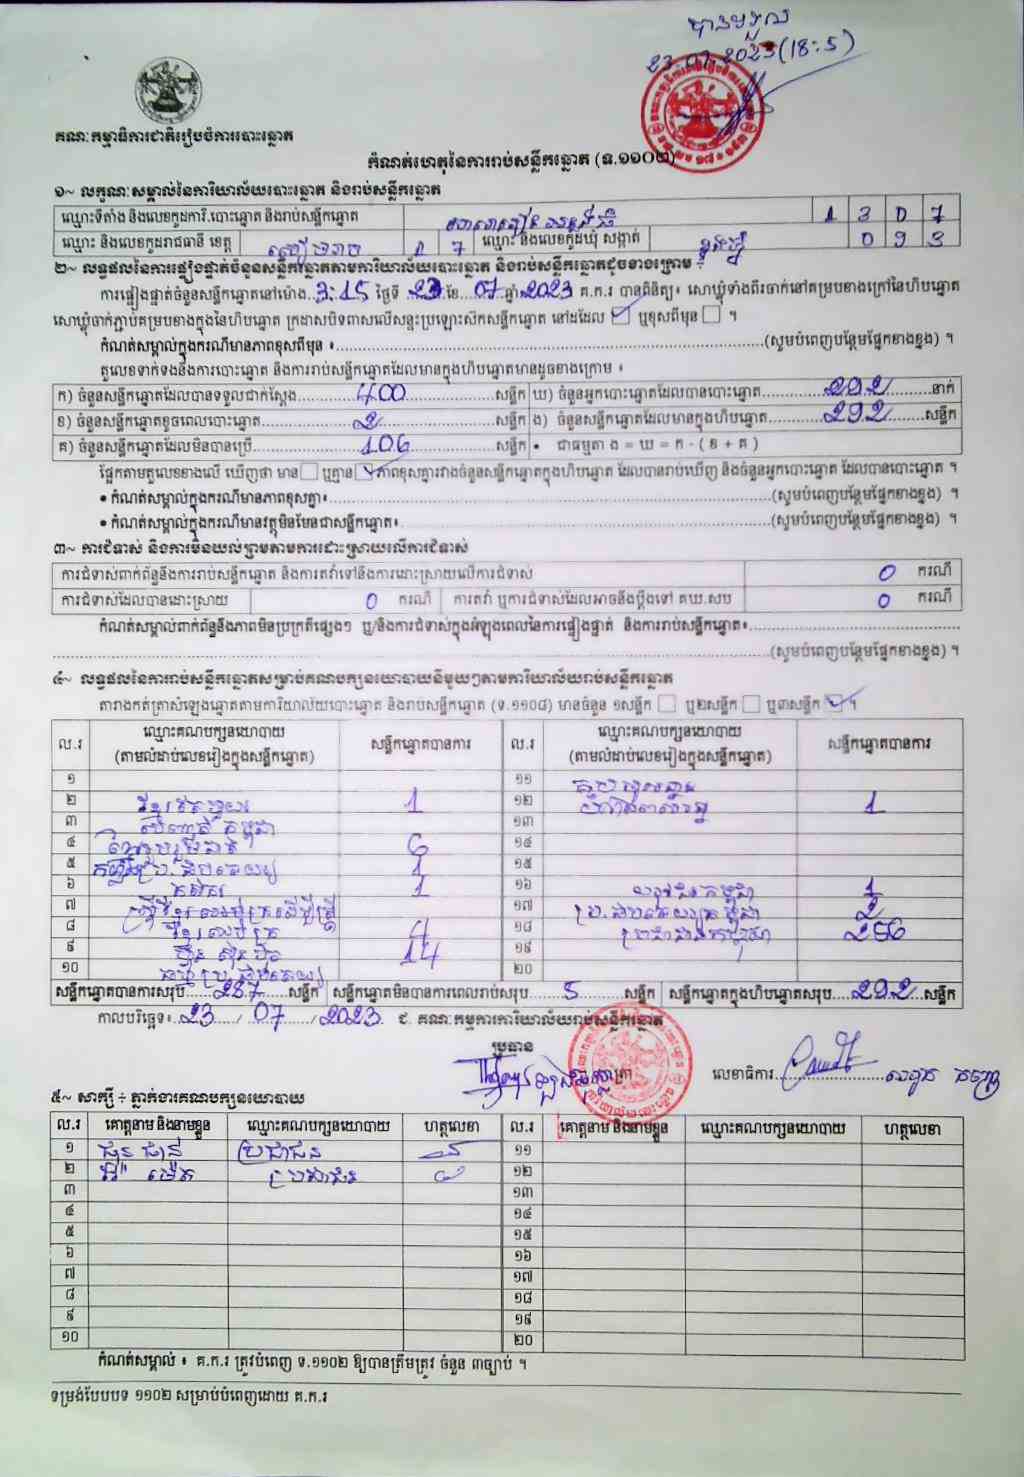 បានមូល
23.07.2023 (18:5)
គណៈកម្មាធិការជាតិរៀបចំការបោះឆ្នោត
កំណត់ហេតុនៃការរាប់សន្លឹកឆ្នោត (ទ.១១០២)
១~ លក្ខណៈសម្គាល់នៃការិយាល័យបោះឆ្នោត និងរាប់សន្លឹកឆ្នោត
ឈ្មោះទីតាំង និងលេខកូដការិ.បោះឆ្នោត និងរាប់សន្លឹកឆ្នោត 1 3 0 7
ឈ្មោះ និងលេខកូដរាជធានី ខេត្ត សៀមរាប 1 7 ឈ្មោះ និងលេខកូដឃុំ សង្កាត់ 0 9 3
២~ លទ្ធផលនៃការផ្ទៀងផ្ទាត់ចំនួនសន្លឹកឆ្នោតតាមការិយាល័យបោះឆ្នោត និងរាប់សន្លឹកឆ្នោតដូចខាងក្រោម ÷
ការផ្ទៀងផ្ទាត់ចំនួនសន្លឹកឆ្នោតនៅម៉ោង 3:15 ថ្ងៃទី 23 ខែ 07 ឆ្នាំ 2023 គ.ក.រ បានពិនិត្យ៖ សោឃ្លុំទាំងពីរចាក់នៅគម្របខាងក្រៅនៃហិបឆ្នោត
សោឃ្លុំចាក់ភ្ជាប់គម្របខាងក្នុងនៃហិបឆ្នោត ក្រដាសបិទពាសលើសន្ទះប្រឡោះស៊កសន្លឹកឆ្នោត នៅដដែល ☑ ឬខុសពីមុន ☐ ។
កំណត់សម្គាល់ក្នុងករណីមានភាពខុសពីមុន ៖ (សូមបំពេញបន្ថែមផ្នែកខាងខ្នង) ។
តួលេខទាក់ទងនឹងការបោះឆ្នោត និងការរាប់សន្លឹកឆ្នោតដែលមានក្នុងហិបឆ្នោតមានដូចខាងក្រោម ៖
ក) ចំនួនសន្លឹកឆ្នោតដែលបានទទួលជាក់ស្តែង 400 សន្លឹក ឃ) ចំនួនអ្នកបោះឆ្នោតដែលបានបោះឆ្នោត 292 នាក់
ខ) ចំនួនសន្លឹកឆ្នោតខូចពេលបោះឆ្នោត 2 សន្លឹក ង) ចំនួនសន្លឹកឆ្នោតដែលមានក្នុងហិបឆ្នោត 292 សន្លឹក
គ) ចំនួនសន្លឹកឆ្នោតដែលមិនបានប្រើ 106 សន្លឹក • ជាធម្មតា ង = ឃ = ក - ( ខ + គ )
ផ្អែកតាមតួលេខខាងលើ ឃើញថា មាន ☐ ឬគ្មាន ☑ ភាពខុសគ្នារវាងចំនួនសន្លឹកឆ្នោតក្នុងហិបឆ្នោត ដែលបានរាប់ឃើញ និងចំនួនអ្នកបោះឆ្នោត ដែលបានបោះឆ្នោត ។
• កំណត់សម្គាល់ក្នុងករណីមានភាពខុសគ្នា៖ (សូមបំពេញបន្ថែមផ្នែកខាងខ្នង) ។
• កំណត់សម្គាល់ក្នុងករណីមានវត្ថុមិនមែនជាសន្លឹកឆ្នោត៖ (សូមបំពេញបន្ថែមផ្នែកខាងខ្នង) ។
៣~ ការជំទាស់ និងការមិនយល់ព្រមតាមការដោះស្រាយលើការជំទាស់
ការជំទាស់ពាក់ព័ន្ធនឹងការរាប់សន្លឹកឆ្នោត និងការតវ៉ាទៅនឹងការដោះស្រាយលើការជំទាស់ 0 ករណី
ការជំទាស់ដែលបានដោះស្រាយ 0 ករណី ការតវ៉ា ឬការជំទាស់ដែលអាចនឹងប្តឹងទៅ គឃ.សប 0 ករណី
កំណត់សម្គាល់ពាក់ព័ន្ធនឹងភាពមិនប្រក្រតីផ្សេងៗ ឬ/និងការជំទាស់ក្នុងអំឡុងពេលនៃការផ្ទៀងផ្ទាត់ និងការរាប់សន្លឹកឆ្នោត៖
(សូមបំពេញបន្ថែមផ្នែកខាងខ្នង) ។
៤~ លទ្ធផលនៃការរាប់សន្លឹកឆ្នោតសម្រាប់គណបក្សនយោបាយនីមួយៗតាមការិយាល័យរាប់សន្លឹកឆ្នោត
តារាងកត់ត្រាសំឡេងឆ្នោតតាមការិយាល័យបោះឆ្នោត និងរាប់សន្លឹកឆ្នោត (ទ.១១០៨) មានចំនួន ១សន្លឹក ☐ ឬ២សន្លឹក ☐ ឬ៣សន្លឹក ☑ ។
ល.រ ឈ្មោះគណបក្សនយោបាយ (តាមលំដាប់លេខរៀងក្នុងសន្លឹកឆ្នោត) សន្លឹកឆ្នោតបានការ ល.រ ឈ្មោះគណបក្សនយោបាយ (តាមលំដាប់លេខរៀងក្នុងសន្លឹកឆ្នោត) សន្លឹកឆ្នោតបានការ
១ ១១
២ 1 ១២ 1
៣ ១៣
៤ 6 ១៤
៥ 1 ១៥
៦ 1 ១៦ 1
៧ ១៧ 2
៨ 4 ១៨ 256
៩ 14 ១៩
១០ ២០
សន្លឹកឆ្នោតបានការសរុប 287 សន្លឹក សន្លឹកឆ្នោតមិនបានការពេលរាប់សរុប 5 សន្លឹក សន្លឹកឆ្នោតក្នុងហិបឆ្នោតសរុប 292 សន្លឹក
កាលបរិច្ឆេទ៖ 23 / 07 / 2023 ជ. គណៈកម្មការការិយាល័យរាប់សន្លឹកឆ្នោត
ប្រធាន
លេខាធិការ
៥~ សាក្សី ÷ ភ្នាក់ងារគណបក្សនយោបាយ
ល.រ គោត្តនាម និងនាមខ្លួន ឈ្មោះគណបក្សនយោបាយ ហត្ថលេខា ល.រ គោត្តនាម និងនាមខ្លួន ឈ្មោះគណបក្សនយោបាយ ហត្ថលេខា
១ ប្រជាជន ១១
២ ប្រជាជន ១២
៣ ១៣
៤ ១៤
៥ ១៥
៦ ១៦
៧ ១៧
៨ ១៨
៩ ១៩
១០ ២០
កំណត់សម្គាល់ ៖ គ.ក.រ ត្រូវបំពេញ ទ.១១០២ ឱ្យបានត្រឹមត្រូវ ចំនួន ៣ច្បាប់ ។
ទម្រង់បែបបទ ១១០២ សម្រាប់បំពេញដោយ គ.ក.រ